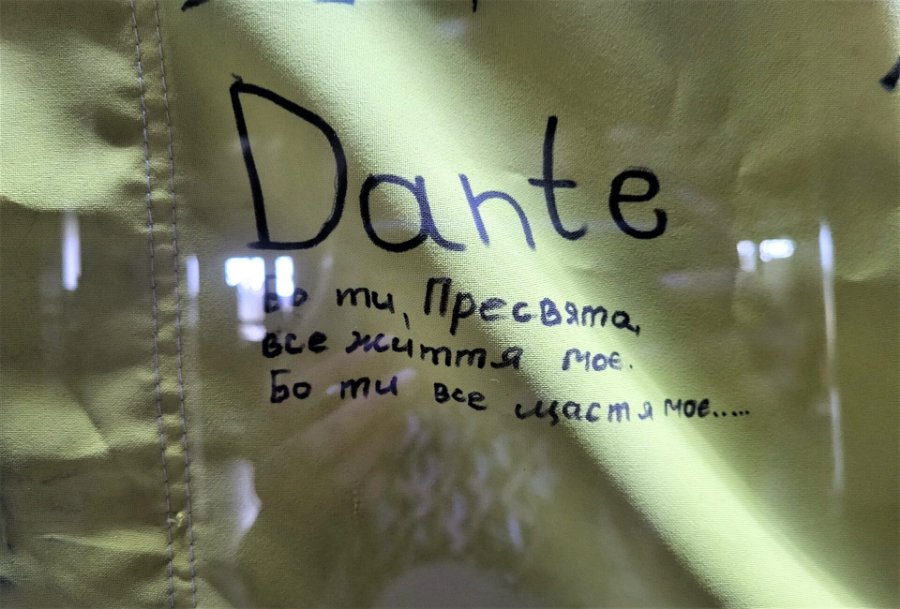 Dante
Бо ти, Пресвята,
все життя моє.
Бо ти все щастя моє.....